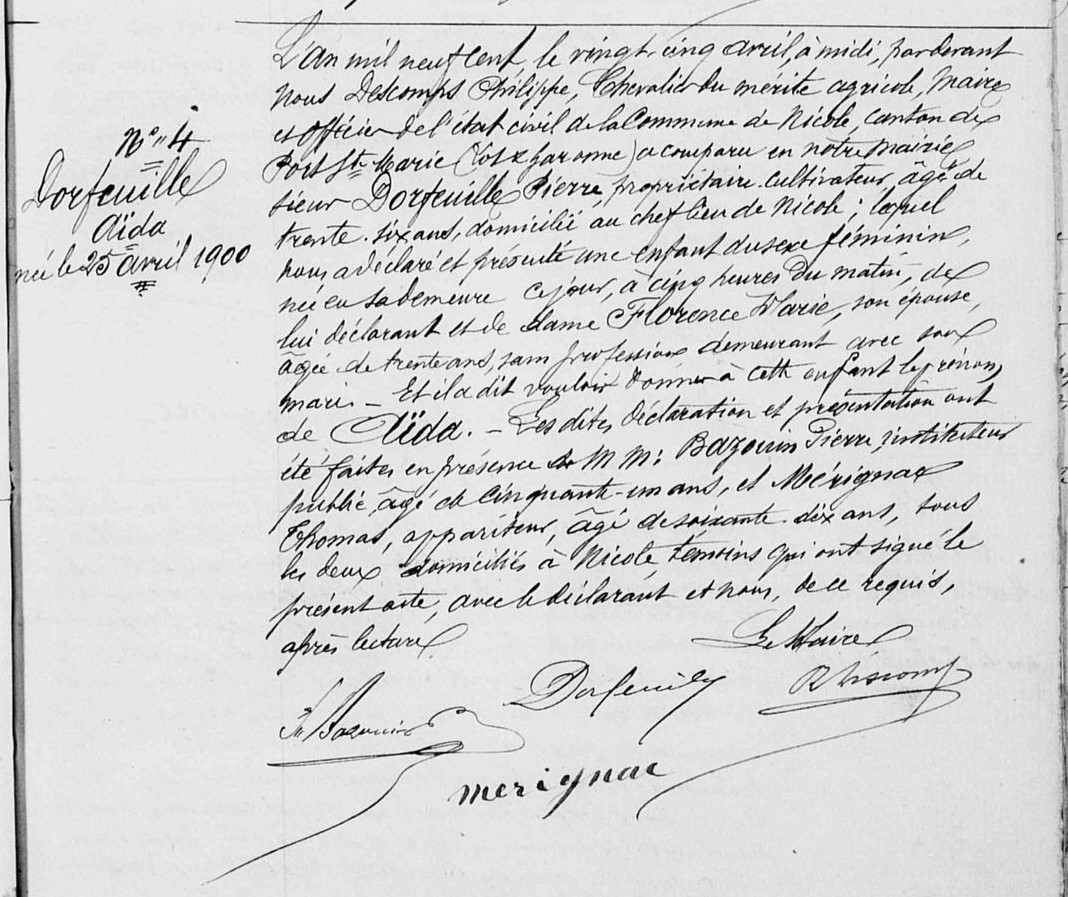 N° 4
Dorfeuille
Aïda
née le 25 avril 1900
L'an mil neuf cent, le vingt-cinq avril, à midi, par devant
Nous Descomps Philippe, Chevalier du mérite agricole, Maire
et Officier de l'état civil de la Commune de Nicole, canton de
Port Ste Marie (Lot & Garonne) a comparu en notre mairie
sieur Dorfeuille Pierre, propriétaire-cultivateur, âgé de
trente-six ans, domicilié au chef lieu de Nicole ; lequel
nous a déclaré et présenté une enfant du sexe féminin,
née en sa demeure ce jour, à cinq heures du matin, de
lui déclarant et de dame Florence Marie, son épouse,
âgée de trente ans, sans profession demeurant avec son
mari. - Et il a dit vouloir donner à cette enfant le prénom
de Aïda. - Les dites déclaration et présentation ont
été faites en présence de M M: Bazouin Pierre, instituteur
public, âgé de cinquante-un ans, et Mérignac
Thomas, appariteur, âgé de soixante-dix ans, tous
les deux domiciliés à Nicole témoins qui ont signé le
présent acte, avec le déclarant et nous, de ce requis,
après lecture.
Le Maire
Dorfeuille
Descomps
Bazouin
merignac